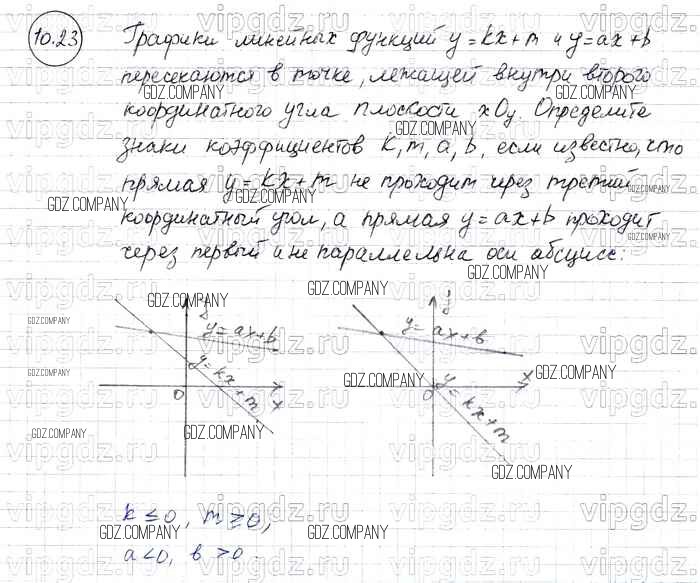 10.23 Графики линейных функций y = kx + m и y = ax + b
пересекаются в точке, лежащей внутри второго
координатного угла плоскости xOy. Определите
знаки коэффициентов k, m, a, b, если известно, что
прямая y = kx + m не проходит через третий
координатный угол, а прямая y = ax + b проходит
через первый и не параллельна оси абсцисс:
y = ax + b
y = kx + m
O
x
y = ax + b
y = kx + m
O
x
k ≤ 0, m ≥ 0,
a < 0, b > 0.
GDZ.COMPANY
vipgdz.ru